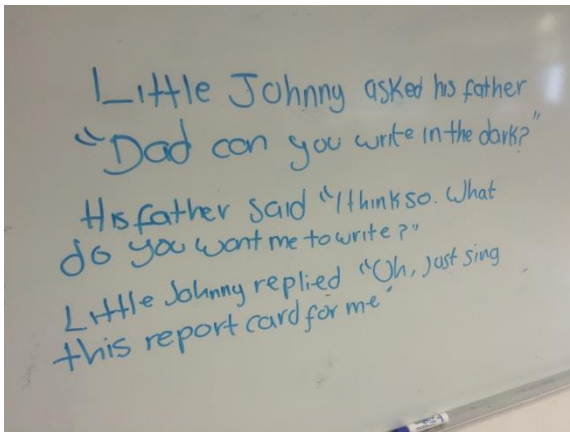 Little Johnny asked his father
"Dad can you write in the dark?"
His father said "I think so. What
do you want me to write?"
Little Johnny replied "Oh, just sing
this report card for me"